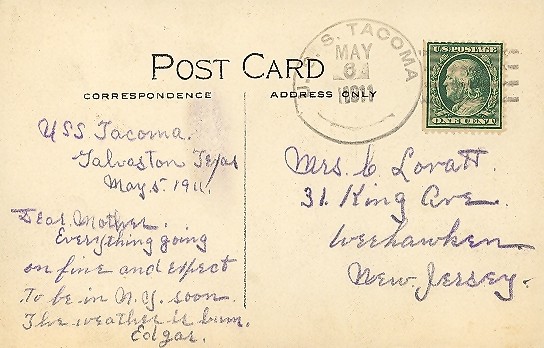 POST CARD
CORRESPONDENCE
ADDRESS ONLY
U.S.S. TACOMA
MAY
6
1911
U.S. POSTAGE
ONE CENT
USS Tacoma.
Galvaston Texas
May 5. 1911.
Dear Mother.
Everything going
on fine and expect
to be in N.Y. soon.
The weather is bum.
Edgar.
Mrs. C. Lovatt.
31. King Ave.
Weehawken
New Jersey.